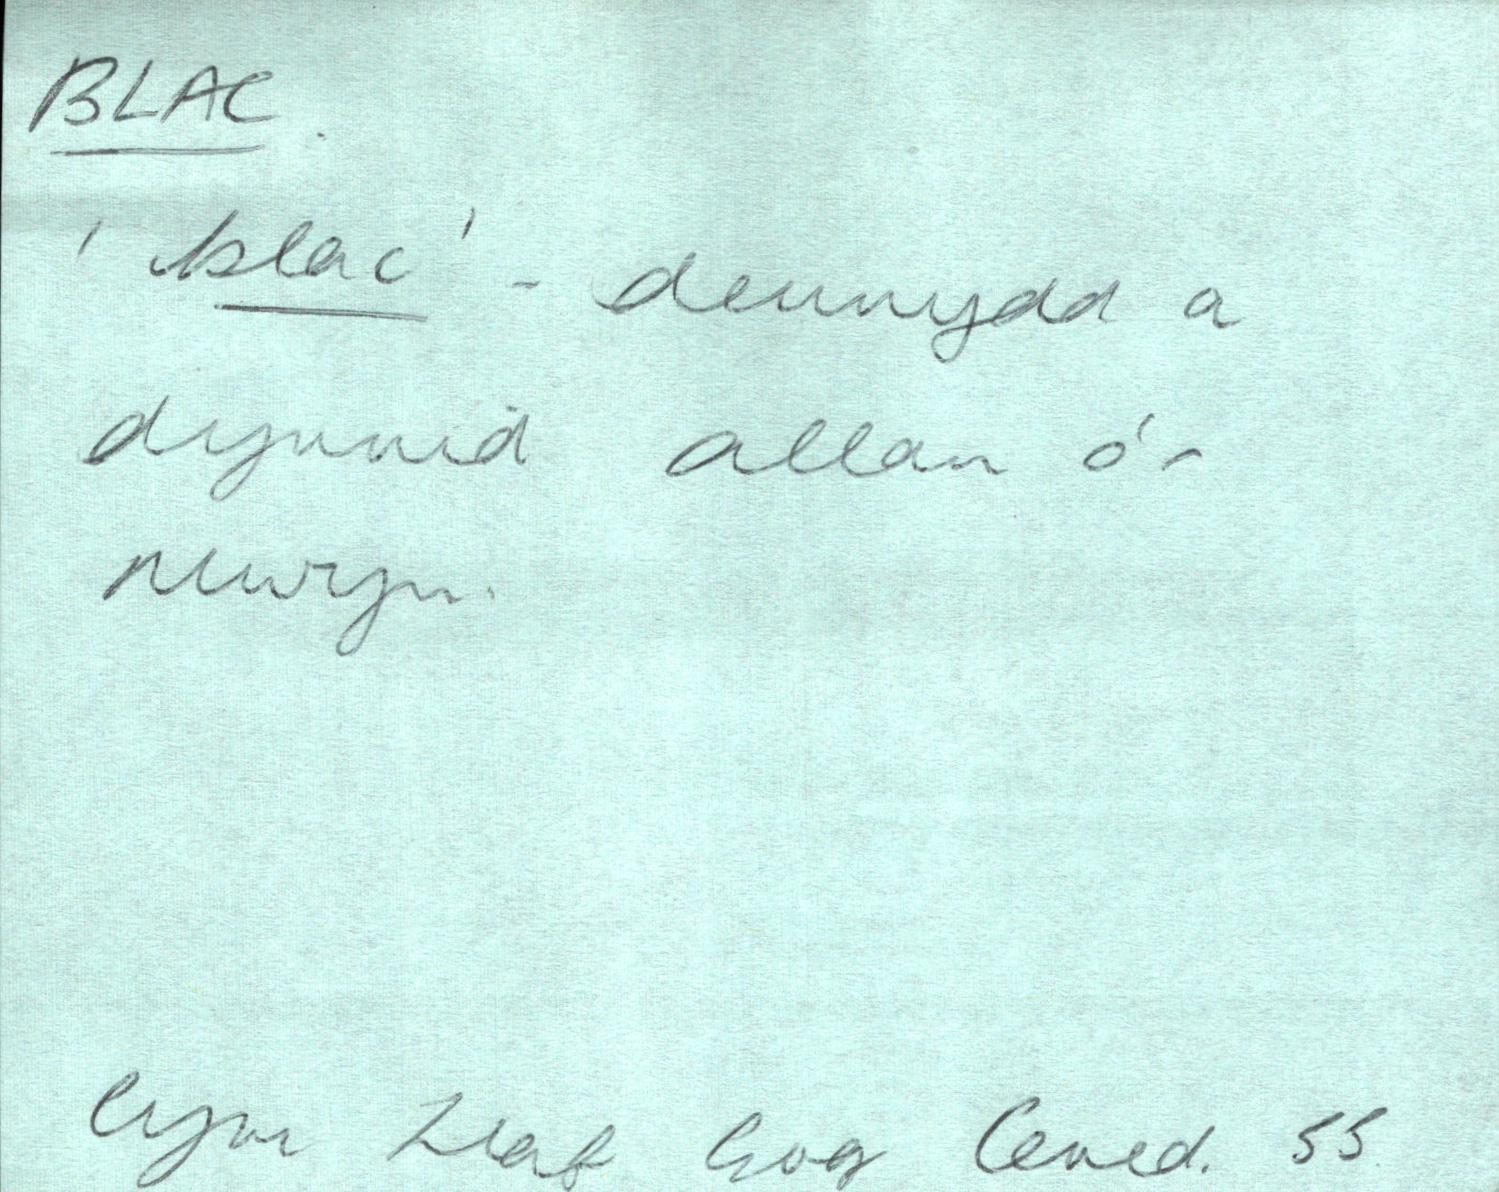 BLAC.
'blac' - deunydd a
dynnid allan o'r
Cym Llaf Gog Cered. 55